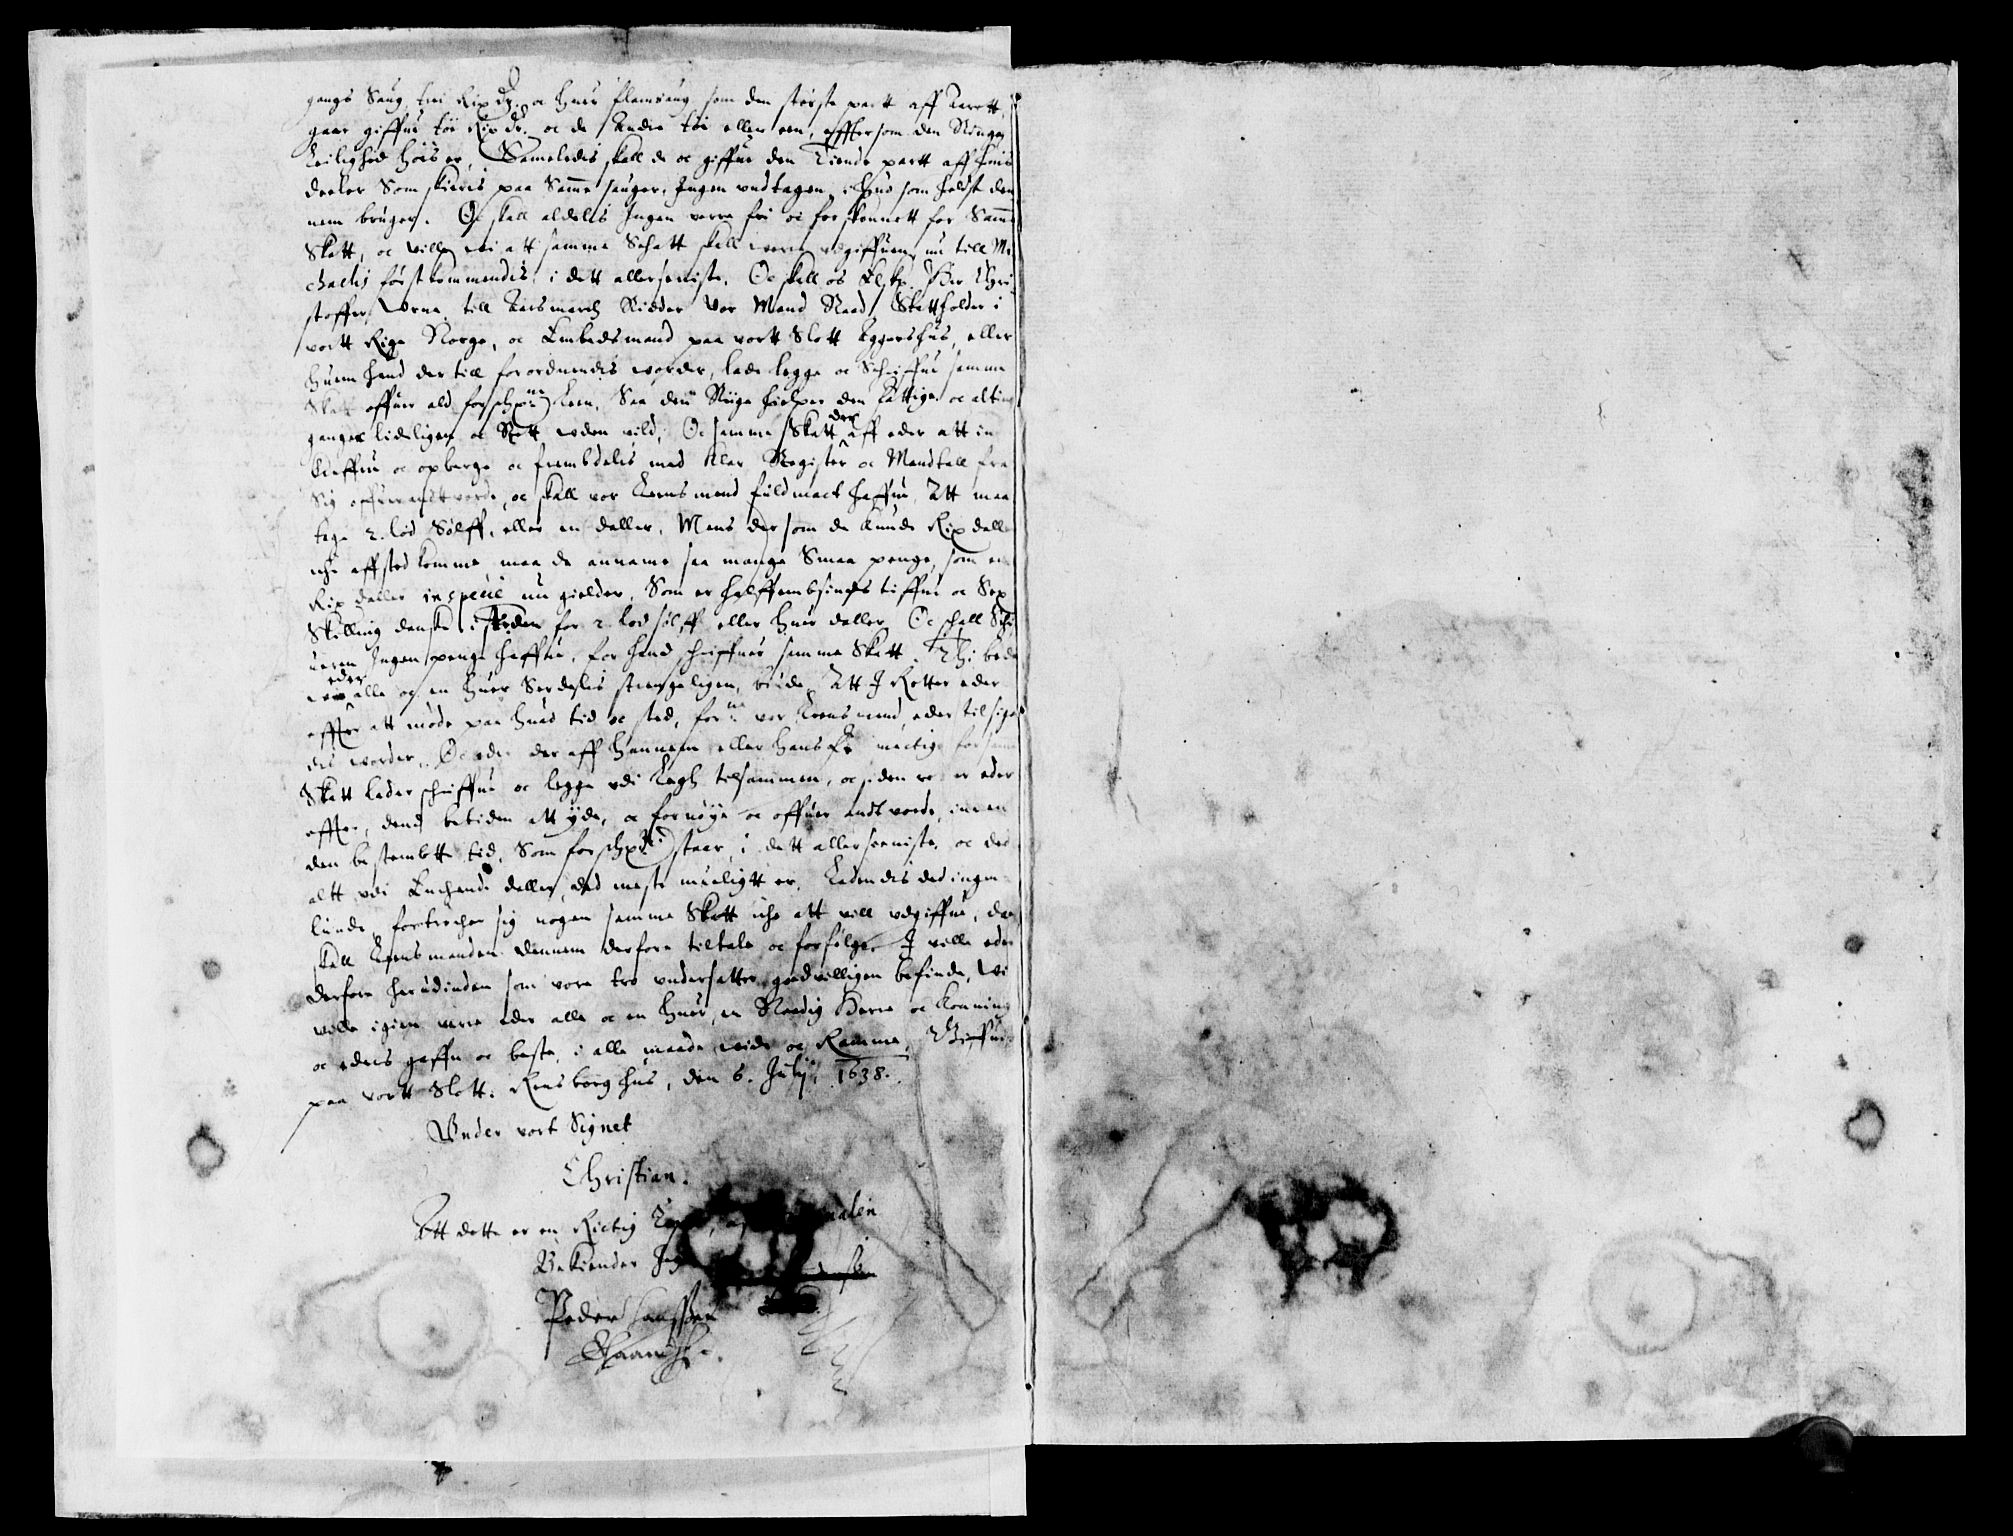 gangs Saug, trei Rix dr. oc huer flomsaug som den største part aff Aarett
gaar giffue toe Rix dr. oc de Andre toe eller een, effter som den Siugens
Leilighed hois er, Sameledis skall de oc giffue den Tiende partt aff huis
deeler Som skieris paa Samme sauger, Ingen undtagen, i huo som helst den
nem bruger. Oc skall aldelis Ingen verre fri oc forskonnett for Samme
Skatt, oc ville wi att samme Schatt skall were udgiffuen nu till Mi
chaelis førstkommendis, i dett allerseniste. Oc skall os Elskp. Her Chri
stoffer Urne till Aarsmarch Ridder Vor Mand Raad, Stattholder i
vortt Rige Norge, oc Embedsmand paa vortt Slott Aggershus, eller
huem hand der till forordnendis worder, lade legge oc Schriffue samme
Skatt offuer ald forschne Leen, Saa den Riige hielper den fattige oc alting
ganger lideligen oc Rett uden vild, Oc samme Skatt der aff eder att in
kreffue oc opberge oc frembdelis med klar Register oc Mandtall fra
Sig offuerantvorde, oc skall vor Leensmand fuldmact haffue, Att maa
tage 2. lod Sølff, eller en daller, Mens der som de kunde Rixdall
iche affsted komme, maa de anname saa mange Smaa penge, som en
Rix daller in specie nu gielder, Som er halffembsinds tiffue oc Sex
Skilling danske i steden for 2. lod sølff eller huer daller, Oc schall Schri
ueren Ingen penge haffue, for hand schriffuer samme Skatt. Thi bede
wi eder alle og en huer Serdelis strengeligen, biude, Att I Retter eder
effter att møde paa huad tid oc sted, forne vor Leensmand, eder tilsigen
dis worder, Oc eder der aff hannem eller hans fuldmectige forschne
Skatt lader schriffue oc legge udi Legh tilsammen, oc siden retter eder
effter, dend betiden att yde, oc fornøye oc offuer andtvorde, innen
den bestembte tid, Som forschne staar, i dett allerseniste, oc det
altt udi Enchende daller, ded meste mueligtt er. Ladendis ded ingen
lunde, fortrecher sig nogen samme Skatt iche att vill udgiffue, da
skall Leensmanden dennem derfore tiltale oc forfølge. I ville eder
derfore herudinden som vore tro undersatter godvilligen befinde, Wi
ville igien were eder alle oc en huer, en Naadig Herre oc Konning
oc eders gaffn oc beste, i alle maade, vide oc Ramme, Giffuit
paa vortt Slott. Rensborghus, den 6. Julij, 1638.
Under vort Signet
Christian.
Att dette er en Rictig Copie, aff
Bekiender Jeg
Peder Hanssen